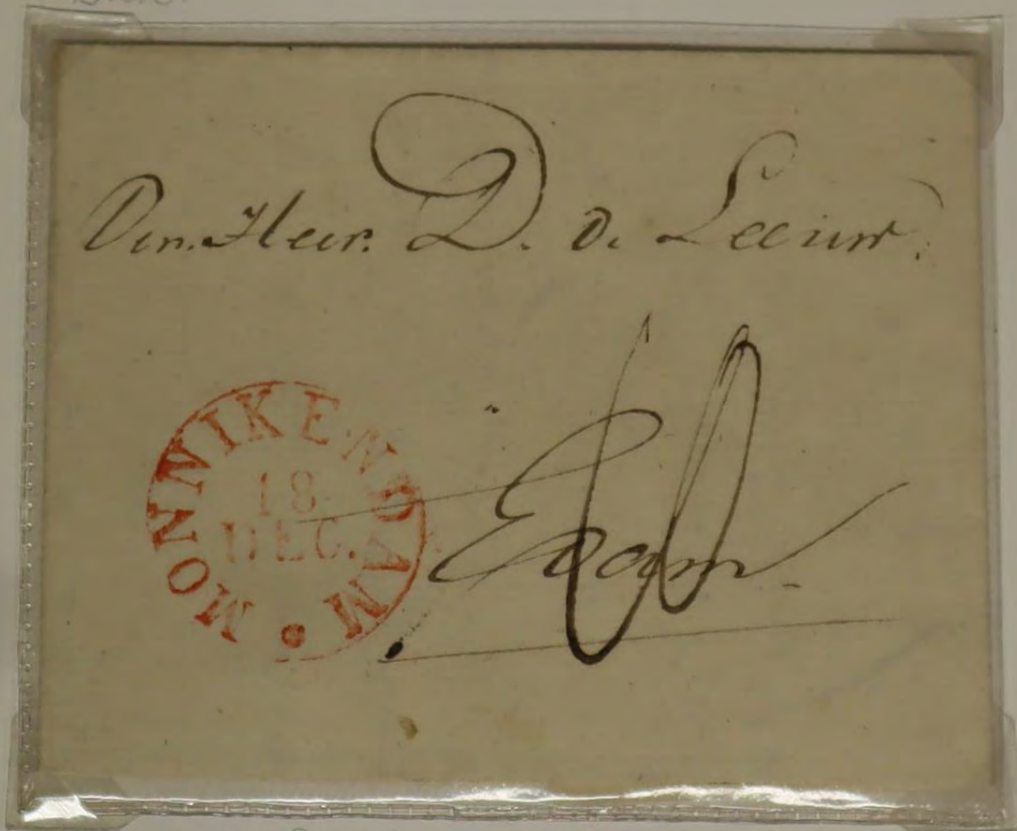 Den Heer. D. D. Leeuw.
MONNIKENDAM
18
DEC.
Edam